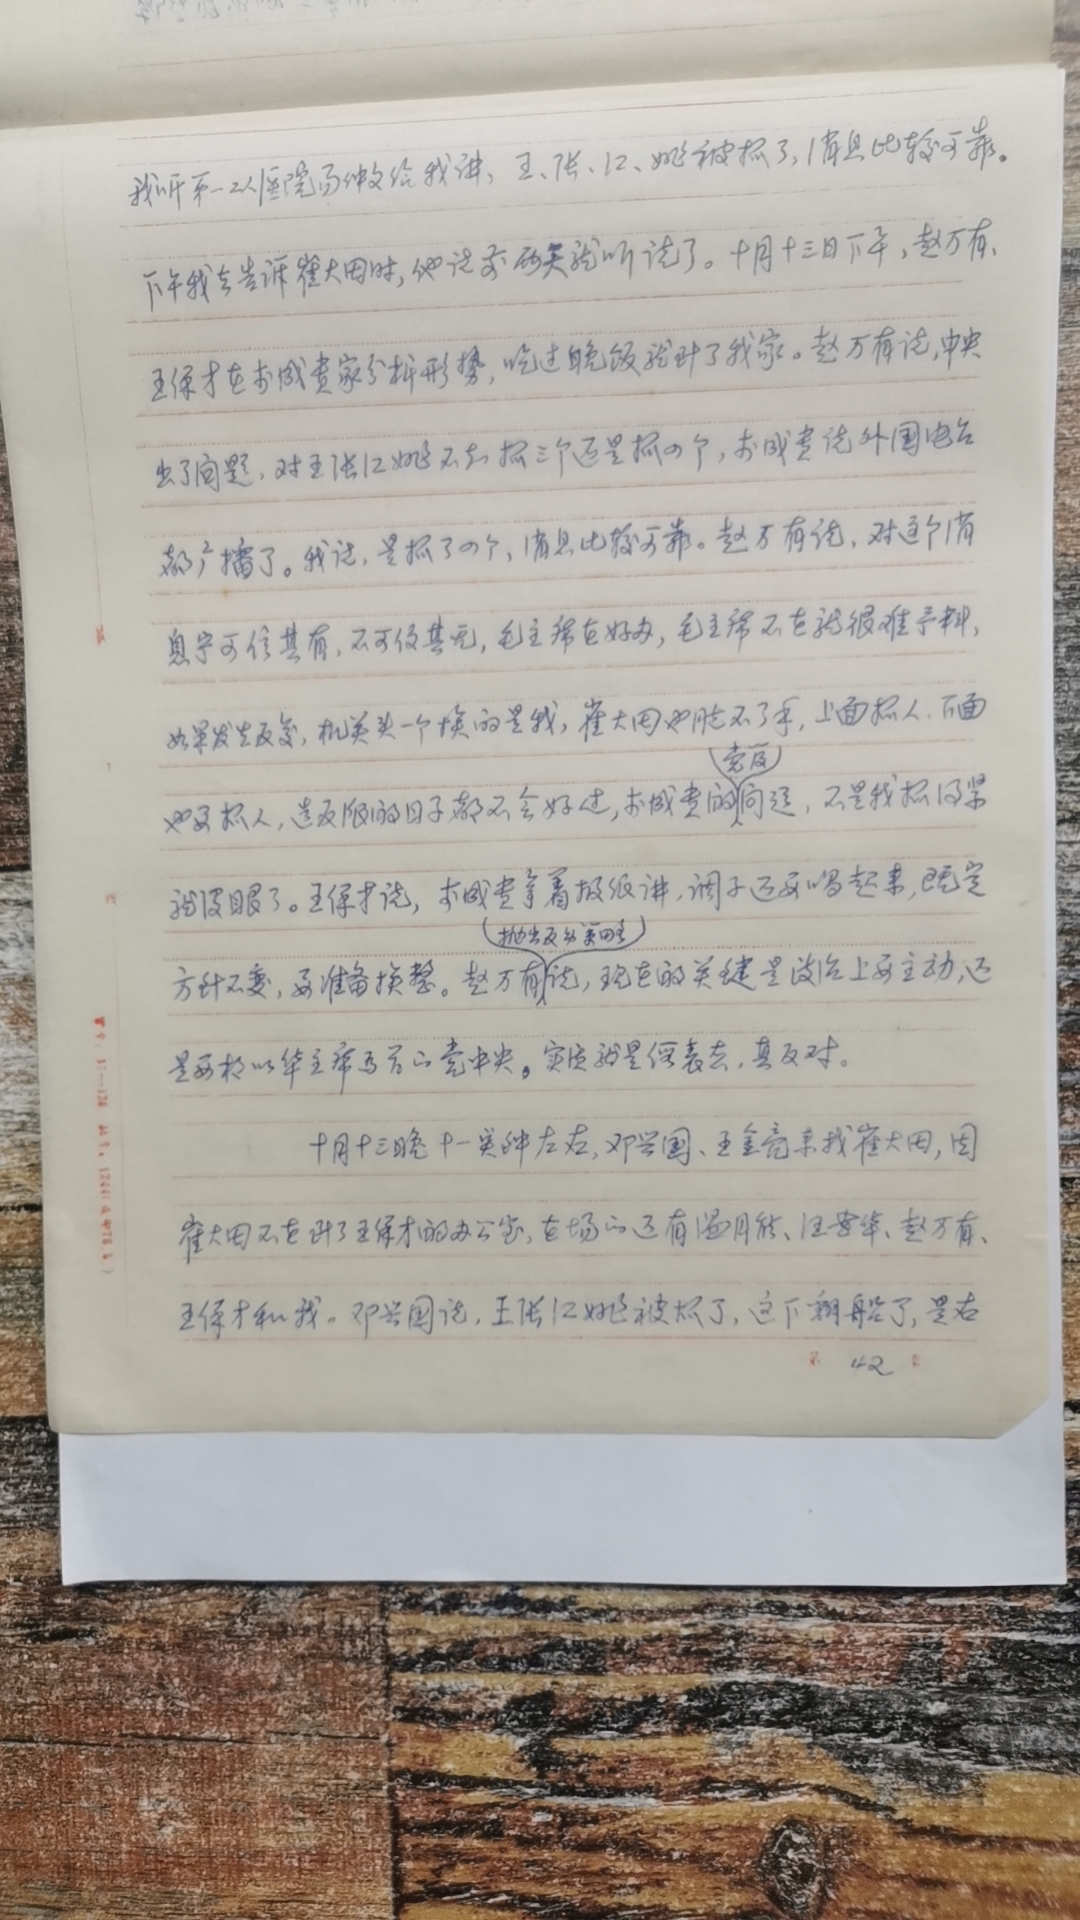 我听第一工人医院高仲文给我讲，王、张、江、姚被抓了，消息比较可靠。
下午我去告诉崔大田时，他说前两天就听说了。十月十三日下午，赵万有、
王保才在成贵家分析形势，吃过晚饭就到了我家。赵万有说，中央
出了问题，对王张江姚不知抓三个还是抓四个，成贵说外国电台
都广播了。我说，是抓了四个，消息比较可靠。赵万有说，对这个消
息宁可信其有，不可信其无，毛主席在好办，毛主席不在就很难予料，
如果发生反复，机关头一个挨的是我，崔大田也脱不了手，上面抓人，下面
也要抓人，造反派的日子都不会好过，成贵的问题，不是我抓得紧
党反
就没眼了。王保才说，成贵拿着报纸讲，调子还要唱起来，既定
抛出反动策略
方针不变，要准备挨整。赵万有说，现在的关键是政治上要主动，还
是要相以华主席为首的党中央。实质就是假表态，真反对。
十月十三晚十一点钟左右，邓兴国、王金亮来找崔大田，因
崔大田不在到了王保才的办公室，在场的还有温月能、汪孝华、赵万有、
王保才和我。邓兴国说，王张江姚被抓了，这下翻船了，是右
第 42 页